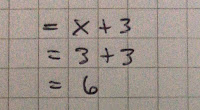 = x + 3
= 3 + 3
= 6